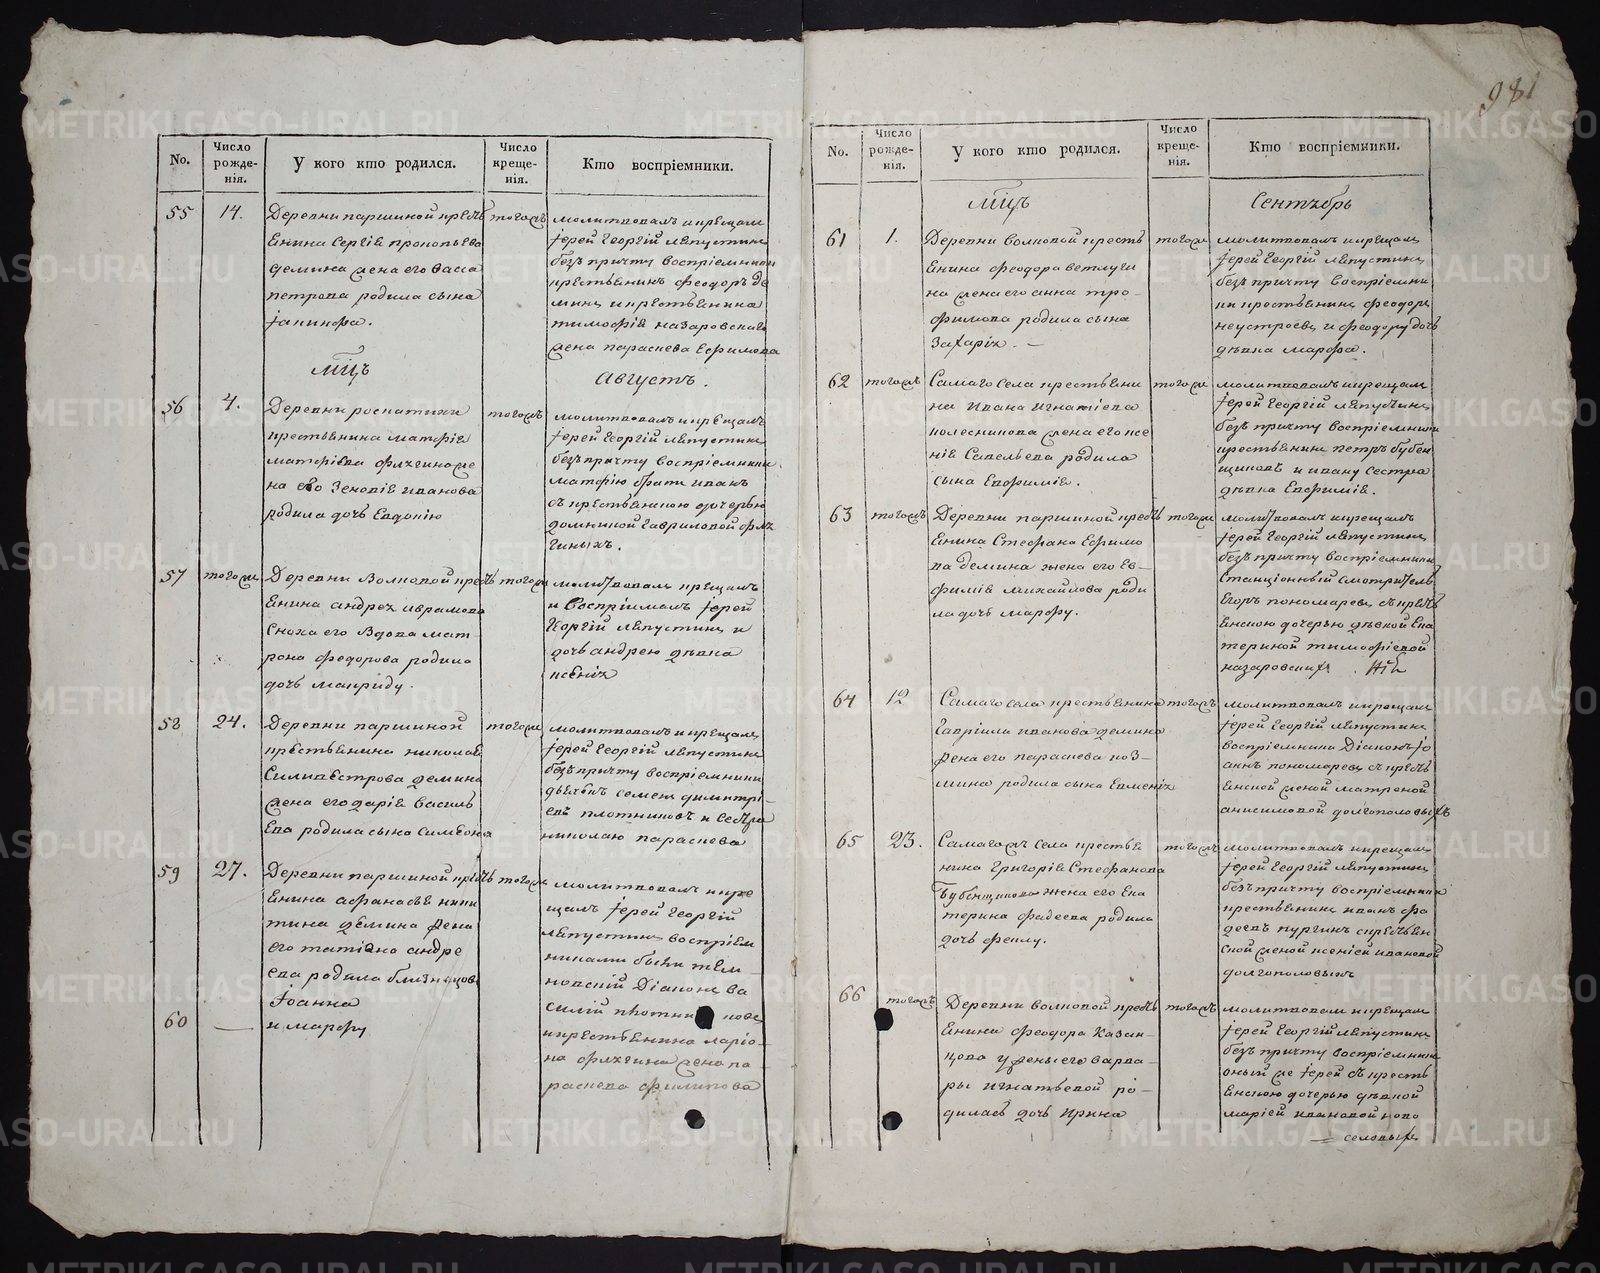 981
No.
Число рожденія.
У кого кто родился.
Число крещенія.
Кто воспріемники.
55
14.
Деревни паршиной кресть
янина Сергія прокопьева
демина жена его васса
петрова родила сына
Іакинфа.
тогожъ
молитвовалъ и крещалъ
іерей Георгій ляпустинъ
безъ причту воспріемники
крестьянинъ феодоръ де
минъ и крестьянина
тимофія назаровскаго
жена параскева Ефимова
мцъ
Августъ.
56
4.
Деревни
крестьянина матфія
матфіева флягина же
на его Зеновія иванова
родила дочь Евдокію
тогожъ
молитвовалъ и крещалъ
іерей Георгій ляпустинъ
безъ причту воспріемники
матфію братъ иванъ
съ крестьянскою дочерью
домникой гавриловой фля
гиныхъ.
57
тогожъ
Деревни Волковой кресть
янина андрея аврамова
сноха его Вдова мат
рона федорова родила
дочь макриду.
тогожъ
молитвовалъ крещалъ
и воспріималъ іерей
Георгій ляпустинъ и
дочь андрею девка
ксенія
58
24.
Деревни паршиной
крестьянина николая
Силивестрова демина
жена его дарія василь
ева родила сына Симеона
тогожъ
молитвовалъ и крещалъ
іерей Георгій ляпустинъ
безъ причту воспріемники
дьячекъ семенъ димитрі
евъ плотниковъ и сестра
николаю параскева
59
27.
Деревни паршиной кресть
янина афанасія ники
тина демина жена
его татіяна андре
ева родила близнецовъ
Іоанна
60
и марфу
тогожъ
молитвовалъ и кре
щалъ іерей Георгій
ляпустинъ воспріем
никами были тем
новскій Діаконъ ва
силій
и крестьянина ларіо
на флягина жена па
раскева филипова
No.
Число рожденія.
У кого кто родился.
Число крещенія.
Кто воспріемники.
мцъ
Сентябрь
61
1.
Деревни волковой кресть
янина феодора ветлуги
на жена его анна тро
фимова родила сына
Захарія. —
тогожъ
молитвовалъ и крещалъ
іерей Георгій ляпустинъ
безъ причту воспріемни
ки крестьянинъ феодоръ
неустроевъ и феодору дочь
девка марфа.
62
тогожъ
Самаго села крестьяни
на Ивана Игнатіева
колесникова жена его ксе
нія Савельева родила
сына Евфимія.
тогожъ
молитвовалъ и крещалъ
іерей Георгій ляпустинъ
безъ причту воспріемники
крестьянинъ петръ бубен
щиковъ и ивану сестра
девка Евфимія.
63
тогожъ
Деревни паршиной кресть
янина Стефана Ефимо
ва демина жена его Ев
фимія михайлова роди
ла дочь марфу.
тогожъ
молитвовалъ и крещалъ
іерей Георгій ляпустинъ
безъ причту воспріемники
станціонный смотритель
Егоръ пономаревъ съ кресть
янскою дочерью девкой Ека
териной тимофіевой
назаровских
64
12
Самаго села крестьянина
Гавріила иванова демина
жена его параскева коз
мина родила сына Евменія
тогожъ
молитвовалъ и крещалъ
іерей Георгій ляпустинъ
воспріемники Діаконъ Іо
аннъ пономаревъ съ кресть
янской женой матреной
анисимовой долгополовыхъ
65
23.
Самагожъ села крестья
нина Григорія Стефанова
Бубенщикова жена его Ека
терина фадеева родила
дочь феклу.
тогожъ
молитвовалъ и крещалъ
іерей Георгій ляпустинъ
безъ причту воспріемники
крестьянинъ иванъ фа
деевъ пургинъ с крестьян
ской женой ксеніей ивановой
долгополовыхъ
66
тогожъ
Деревни волковой кресть
янина феодора Казан
цова у жены его варва
ры игнатьевой ро
дилась дочь Ирина
тогожъ
молитвовалъ и крещалъ
іерей Георгій ляпустинъ
безъ причту воспріемники
оный же іерей съ кресть
янскою дочерью девкой
маріей ивановой ново
селовых